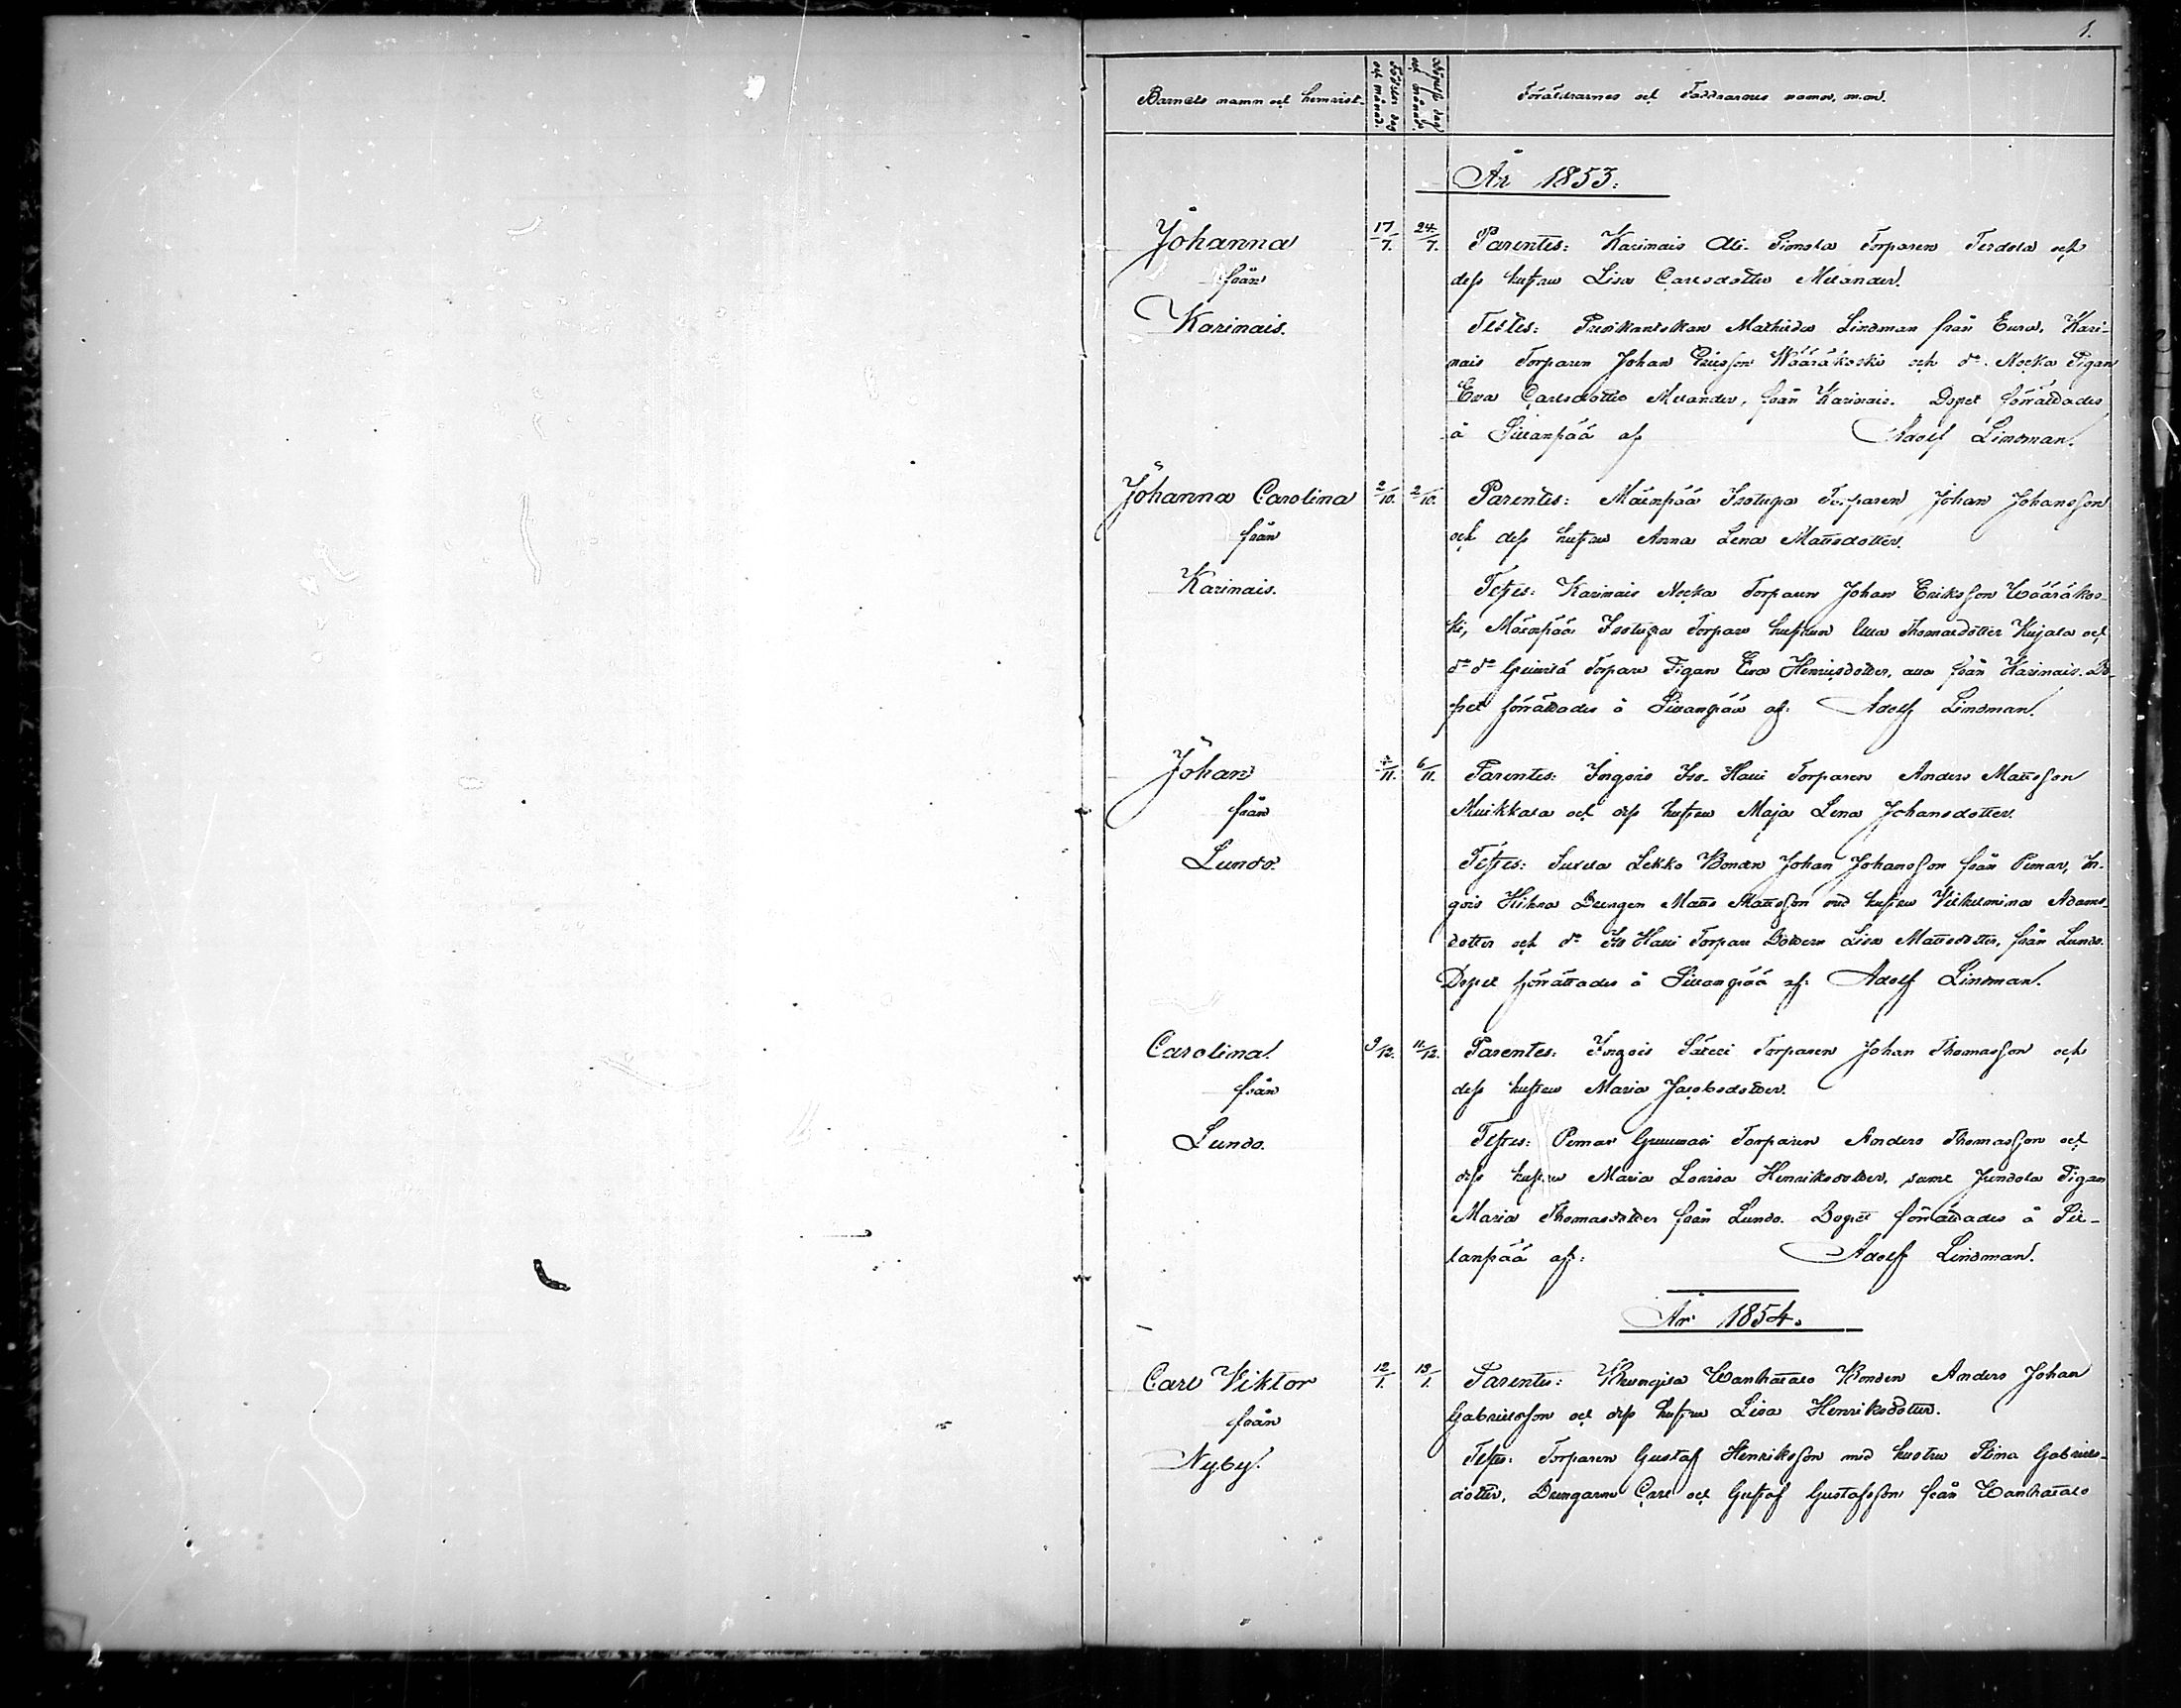 1.
Barnets namn och hemvist.
Födelse dag och månad.
Döpelse dag och månad.
Föräldrarnes och Faddrarnes namn, m.m.
År 1853.
Johanna
från
Karinais.
17/7.
24/7.
Parentes: Karinais Ali- Simola Torparen Terdola och
dess hustru Lisa Carlsdotter Melander.
Testes: Predikantskan Mathilda Lindman från Eura, Kari-
nais Torparen Johan Ericsson Wääräkoski och d:o Nocka Pigan
Eva Carlsdotter Melander, från Karinais. Dopet förrättades
å Sillanpää af Adolf Lindman.
Johanna Carolina
från
Karinais.
2/10.
2/10.
Parentes: Mäenpää Isotupa Torparen Johan Johansson
och dess hustru Anna Lena Mattsdotter.
Testes: Karinais Nocka Torparen Johan Eriksson Wääräkos-
ki, Mäenpää Isotupa Torpare hustrun Ulla Thomasdotter Kujala och
d:o d:o Torpare Pigan Eva Henricsdotter, alla från Karinais. Do-
pet förrättades å Sillanpää af: Adolf Lindman.
Johan
från
Lundo.
/11.
6/11.
Parentes: Ingois Iso- Halli Torparen Anders Mattsson
Muikkala och dess hustru Maja Lena Johansdotter.
Testes: Lekko Bonden Johan Johansson från Pemar, In-
gois Hihna Drengen Matts Mattsson med hustru Vilhelmina Adams-
dotter och d:o Iso Halli Torpare Dottern Lisa Mattsdotter, från Lundo.
Dopet förrättades å Sillanpää af: Adolf Lindman.
Carolina
från
Lundo.
9/12.
11/12.
Parentes: Ingois Torparen Johan Thomasson och
dess hustru Maria Jacobsdotter.
Testes: Pemar Torparen Anders Thomasson och
dess hustru Maria Lovisa Henriksdotter, samt Jundola Pigan
Maria Thomasdotter från Lundo. Dopet förrättades å Sil-
lanpää af: Adolf Lindman.
År 1854.
Carl Viktor
från
Nyby.
12/1.
13/1.
Parentes: Wanhatalo Bonden Anders Johan
Gabrielsson och dess hustru Lisa Henriksdotter.
Testes: Torparen Gustaf Henriksson med hustru Stina Gabriels-
dotter, Drengarne Carl och Gustaf Gustafsson från Wanhatalo